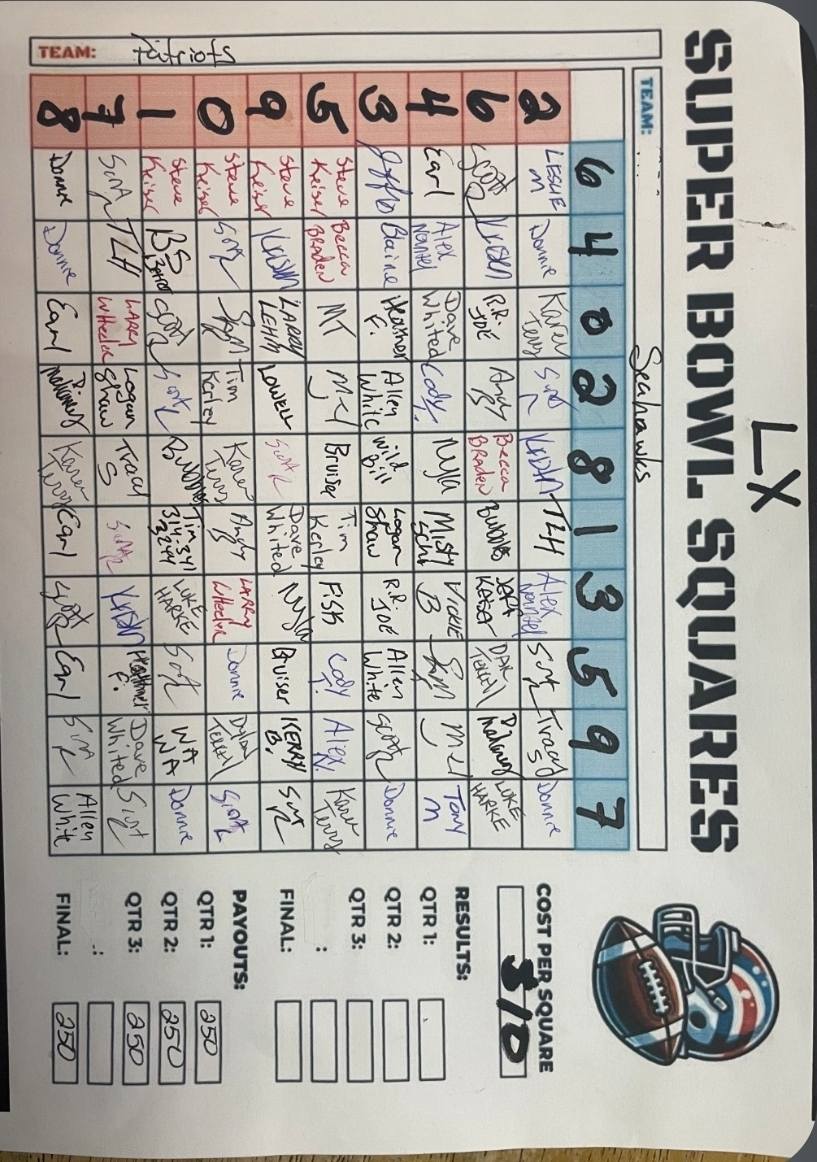 LX
SUPER BOWL SQUARES
TEAM: Seahawks
TEAM: Patriots
6 4 0 2 8 1 3 5 9 7
2 LESLIE M Donnie Karen Terry Scott Kristin TLH Alex Scott Tracy S Donnie
6 Scott Kristen R.R. JOE Andy B Becca BRADEN BUBBLES JEFF KAISER LUKE HARKE
4 Earl Alex Dave Whited Cody Nyla Misty Schr VICKIE B Sam Tony M
3 Blaine Heather F. Allen White Wild Bill Logan Shaw R.R. JOE Allen White Scott Donnie
5 Steve Keiser Becca BRADEN MT Bruiser Tim Kerley FISK Cody T. Alex N. Karen Terry
9 Steve Keiser Kristin LARRY LEHM LOWELL Scott Dave Whited Nyla Bruiser KERRY B.
0 Steve Keiser Tim Kerley Karen Terry Andy LARRY Wheeler Donnie Dylan Terrell Scott
1 Steve Keiser BS Scott Scott BUBBLES Tim LUKE HARKE Scott WA WA Donnie
7 TLH LARRY Wheeler Logan Shaw Tracy S Kristin Heather F. Dave Whited Scott
8 Donnie Donnie Earl Karen Terry Earl Scott Earl Allen White
COST PER SQUARE
$10
RESULTS:
QTR 1:
QTR 2:
QTR 3:
FINAL:
PAYOUTS:
QTR 1: 250
QTR 2: 250
QTR 3: 250
FINAL: 250